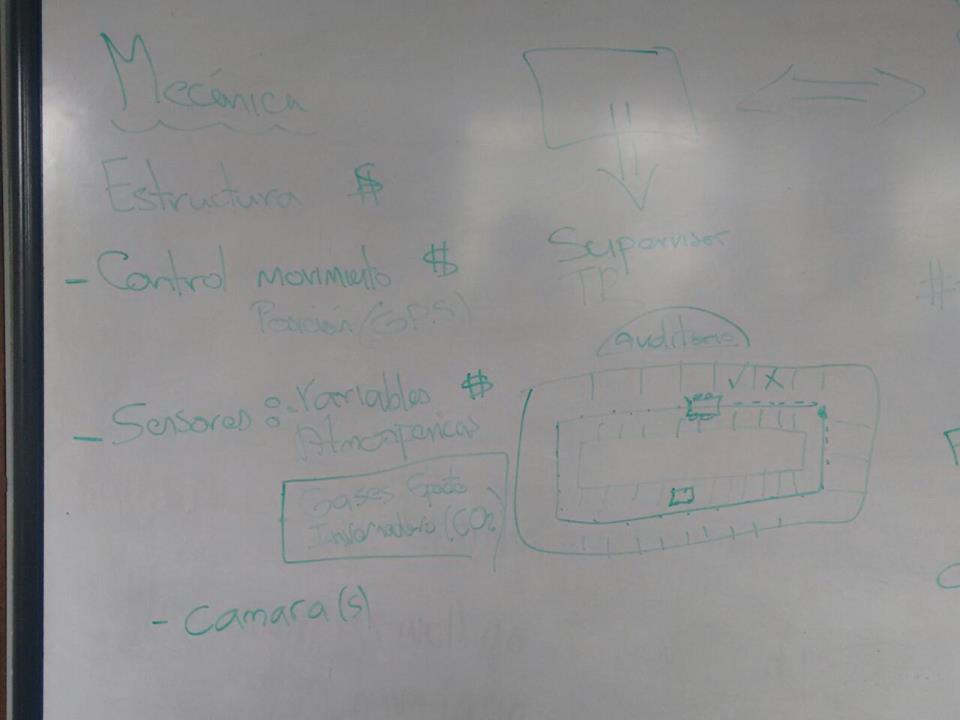 Mecánica
Estructura $
- Control movimiento $
Posición (GPS)
- Sensores : Variables $
Atmosféricas
Gases Efecto
Invernadero (CO2)
- Camara(s)
Supervisor
auditorio
✓ X
#